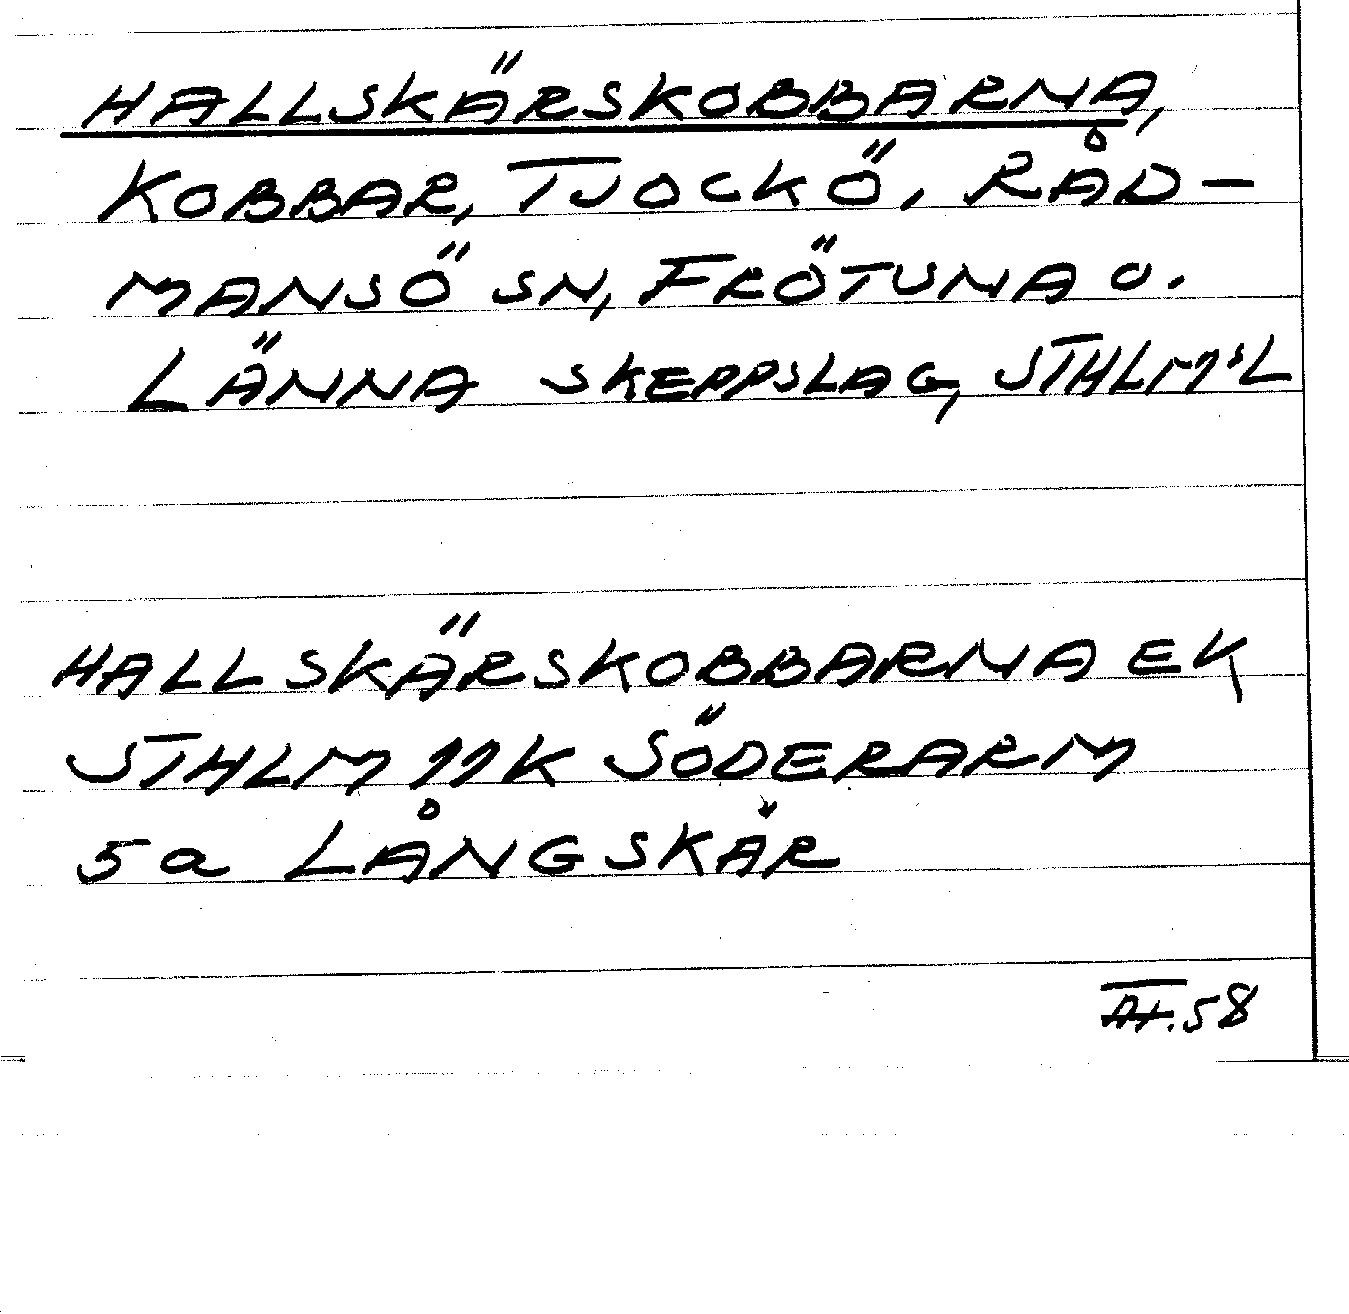 HALLSKÄRSKOBBARNA,
KOBBAR, TJOCKÖ, RÅD-
MANSÖ SN, FRÖTUNA O.
LÄNNA SKEPPSLAG, STHLMSL
HALLSKÄRSKOBBARNA EK
STHLM 11K SÖDERARM
5a LÅNGSKÄR
58